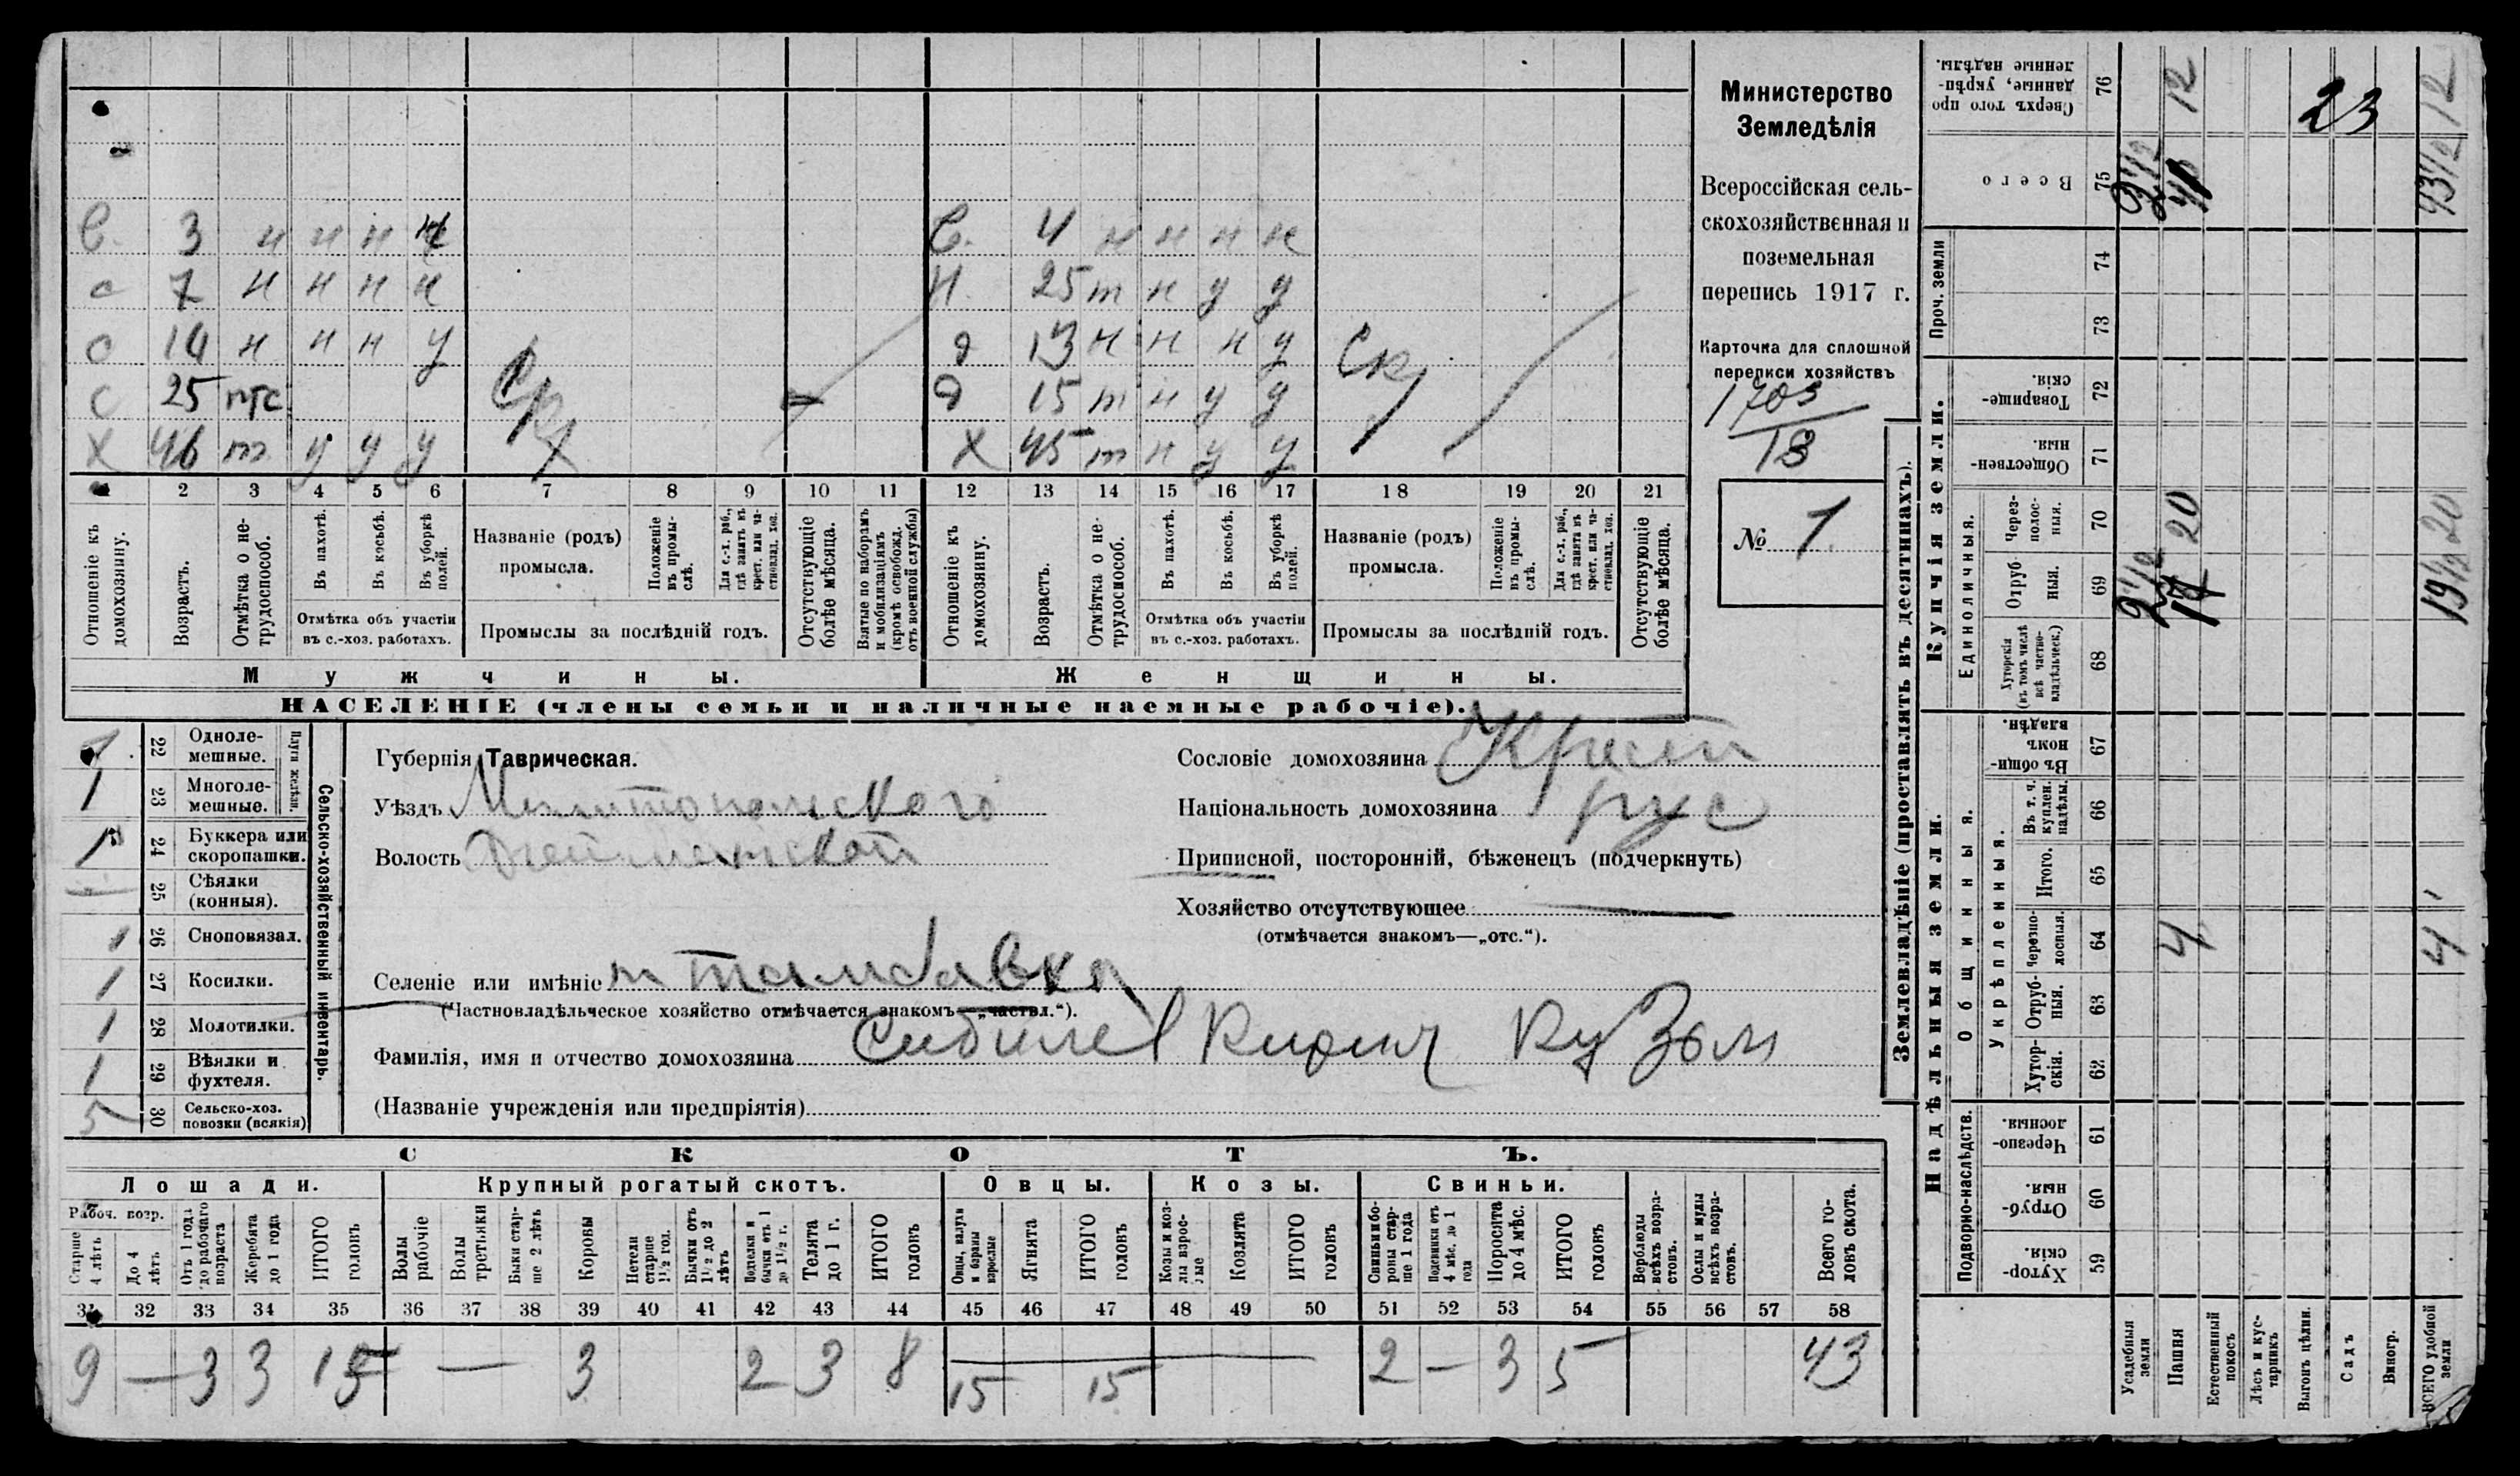 В. 3 н н н н
с 7 н н н н
с 14 н н н у
с 25 птс
Х 46 т у у у Ср
В. 4 н н н н
Н. 25 т н у у
д 13 н н н у
д 15 т н у у
Х 45 т н у у Ск
1 2 3 4 5 6 7 8 9 10 11 12 13 14 15 16 17 18 19 20 21
Отношеніе къ домохозяину.
Возрастъ.
Отмѣтка о нетрудоспособ.
Въ пахотѣ.
Въ косьбѣ.
Въ уборкѣ полей.
Отмѣтка объ участіи въ с.-хоз. работахъ.
Названіе (родъ) промысла.
Положеніе въ промыслѣ.
Для с.-х. раб., гдѣ занятъ въ крест. или частновлад. хоз.
Промыслы за послѣдній годъ.
Отсутствующіе болѣе мѣсяца.
Взятые по наборамъ и мобилизаціямъ (кромѣ освобожд. отъ военной службы)
Отношеніе къ домохозяину.
Возрастъ.
Отмѣтка о нетрудоспособ.
Въ пахотѣ.
Въ косьбѣ.
Въ уборкѣ полей.
Отмѣтка объ участіи въ с.-хоз. работахъ.
Названіе (родъ) промысла.
Положеніе въ промыслѣ.
Для с.-х. раб., гдѣ занята въ крест. или частновлад. хоз.
Промыслы за послѣдній годъ.
Отсутствующіе болѣе мѣсяца.
Мужчины.
Женщины.
НАСЕЛЕНІЕ (члены семьи и наличные наемные рабочіе).
Министерство
Земледѣлія
Всероссійская сель-
скохозяйственная и
поземельная
перепись 1917 г.
Карточка для сплошной
переписи хозяйствъ
1703
13
№ 1
22 Одноле-мешные.
1 23 Многоле-мешные.
Плуги желѣзн.
1 24 Буккера или скоропашки.
— 25 Сѣялки (конныя).
1 26 Сноповязал.
1 27 Косилки.
1 28 Молотилки.
1 29 Вѣялки и фухтеля.
5 30 Сельско-хоз. повозки (всякія)
Сельско-хозяйственный инвентарь.
Губернія Таврическая.
Уѣздъ Мелитопольскаго
Волость
Сословіе домохозяина Крест
Національность домохозяина рус
Приписной, посторонній, бѣженецъ (подчеркнуть)
Хозяйство отсутствующее —
(отмѣчается знакомъ—„отс.“).
Селеніе или имѣніе
(Частновладѣльческое хозяйство отмѣчается знакомъ—„частвл.“).
Фамилія, имя и отчество домохозяина Сибилев Кирил Кузьм
(Названіе учрежденія или предпріятія)
СКОТЪ.
Лошади. Крупный рогатый скотъ. Овцы. Козы. Свиньи.
Рабоч. возр.
Старше 4 лѣтъ
До 4 лѣтъ
Отъ 1 года до рабочаго возраста
Жеребята до 1 года
ИТОГО головъ
Волы рабочіе
Волы третьяки
Быки старше 2 лѣтъ
Коровы
Нетели старше 1½ год.
Бычки отъ 1½ до 2 лѣтъ
Подтелки и бычки отъ 1 до 1½ г.
Телята до 1 г.
ИТОГО головъ
Овцы, валухи и бараны взрослые
Ягнята
ИТОГО головъ
Козы и козлы взрослые
Козлята
ИТОГО головъ
Свиньи и боровы старше 1 года
Подсвинки отъ 4 мѣс. до 1 года
Поросята до 4 мѣс.
ИТОГО головъ
Верблюды всѣхъ возрастовъ.
Ослы и мулы всѣхъ возрастовъ.
Всего головъ скота.
31 32 33 34 35 36 37 38 39 40 41 42 43 44 45 46 47 48 49 50 51 52 53 54 55 56 57 58
9 — 3 3 15 — 3 2 3 8 15 15 2 — 3 5 43
Землевладѣніе (проставлять въ десятинахъ).
Надѣльныя земли. Купчія земли. Проч. земли
Подворно-наслѣдств.
Общинныя.
Укрѣпленныя.
Единоличныя.
59 Хуторскія.
60 Отрубныя.
61 Черезполосныя.
62 Хуторскія.
63 Отрубныя.
64 Черезполосныя.
65 Итого.
66 Въ т. ч. куплен. надѣлы.
67 Въ общинномъ владѣн.
68 Хуторскія (въ томъ числѣ всѣ частновладѣльческ.)
69 Отрубныя.
70 Черезполосныя.
71 Общественныя.
72 Товарищескія.
73
74
75 Всего
76 Сверхъ того проданные, укрѣпленные надѣлы.
Усадебныя земли 2½ 2½
Пашня 4 17 20 41 12
Естественный покосъ
Лѣсъ и кустарникъ
Выгонъ цѣлин. 23
Садъ
Виногр.
ВСЕГО удобной земли 4 19½ 20 43½ 12